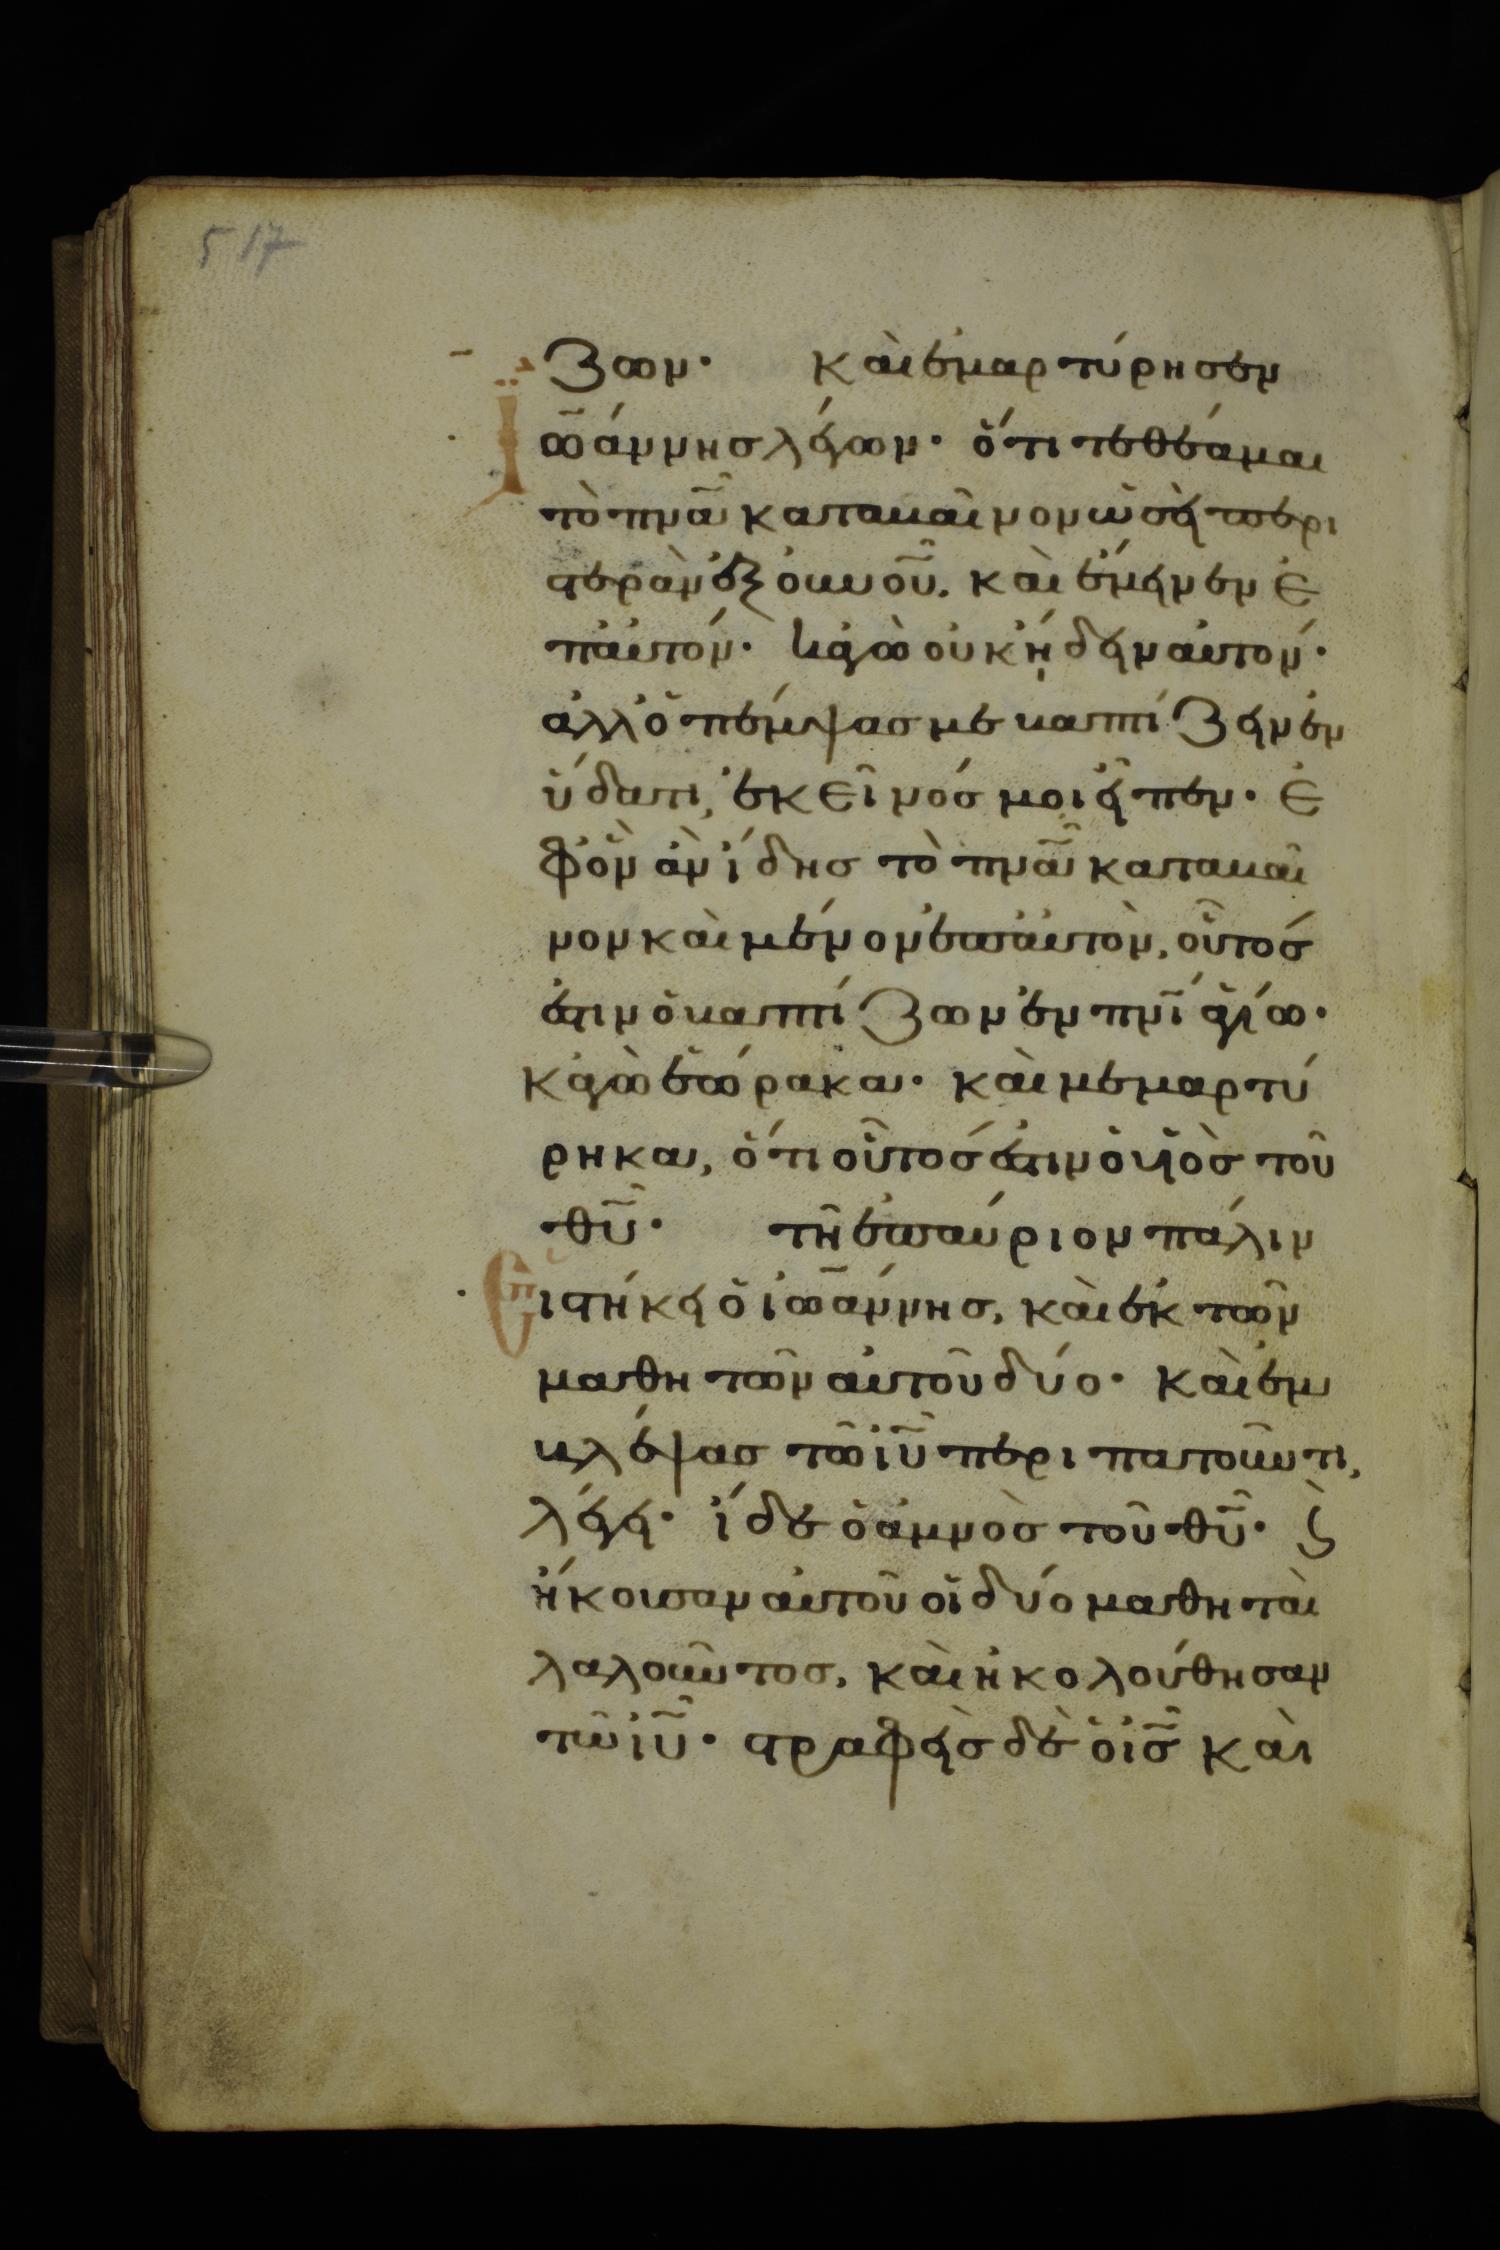 517
ζων· καὶ ἐμαρτύρησεν
Ἰωάννησ λέγων· ὅτι τεθέαμαι
τὸ πνᾶ καταβαῖνον ὡσεὶ περι
στερὰν ἐξ οὐνοῦ. καὶ ἔμεινεν ἐ
π' αὐτόν· κἀγὼ οὐκ ἤδειν αὐτόν·
ἀλλ' ὁ πέμψασ με βαπτίζειν ἐν
ὕδατι, ἐκεῖνόσ μοι εἶπεν· ἐ
φ' ὃν ἂν ἴδησ τὸ πνᾶ καταβαῖ
νον καὶ μένον ἐπ' αὐτὸν, οὗτόσ
ἐστιν ὁ βαπτίζων ἐν πνῖ ἁγίω·
κἀγὼ ἑώρακα· καὶ μεμαρτύ
ρηκα, ὅτι οὗτόσ ἐστιν ὁ υἱὸσ τοῦ
θῦ· τῆ ἐπαύριον πάλιν
Εἱστήκει ὁ ἰωάννησ, καὶ ἐκ τῶν
μαθητῶν αὐτοῦ δύο· καὶ ἐμ
βλέψασ τῶ ἰῦ περιπατοῦντι,
λέγει· ἴδε ὁ ἀμνὸσ τοῦ θῦ· ϗ
ἤκουσαν αὐτοῦ οἱ δύο μαθηταὶ
λαλοῦντοσ, καὶ ἠκολούθησαν
τῶ ἰῦ· στραφεὶσ δὲ ὁ ἰσ καὶ